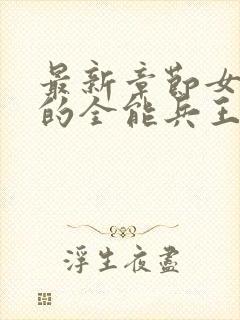 最新章节女
的全能兵王
浮生夜盡